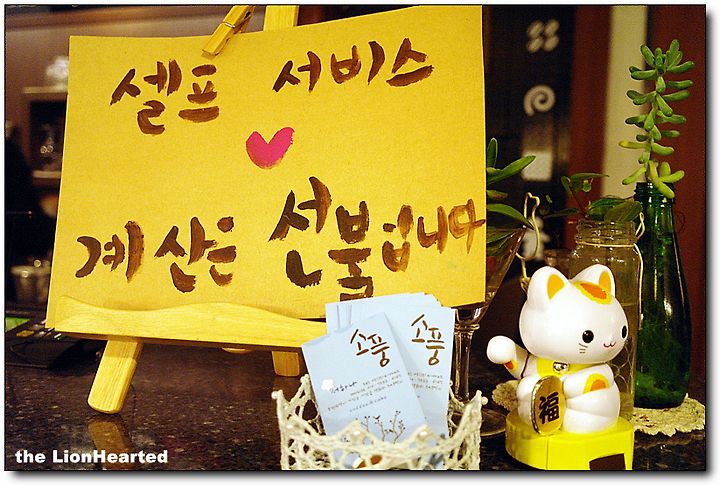 셀프 서비스
계산은 선불입니다
소풍
소풍
福
the LionHearted